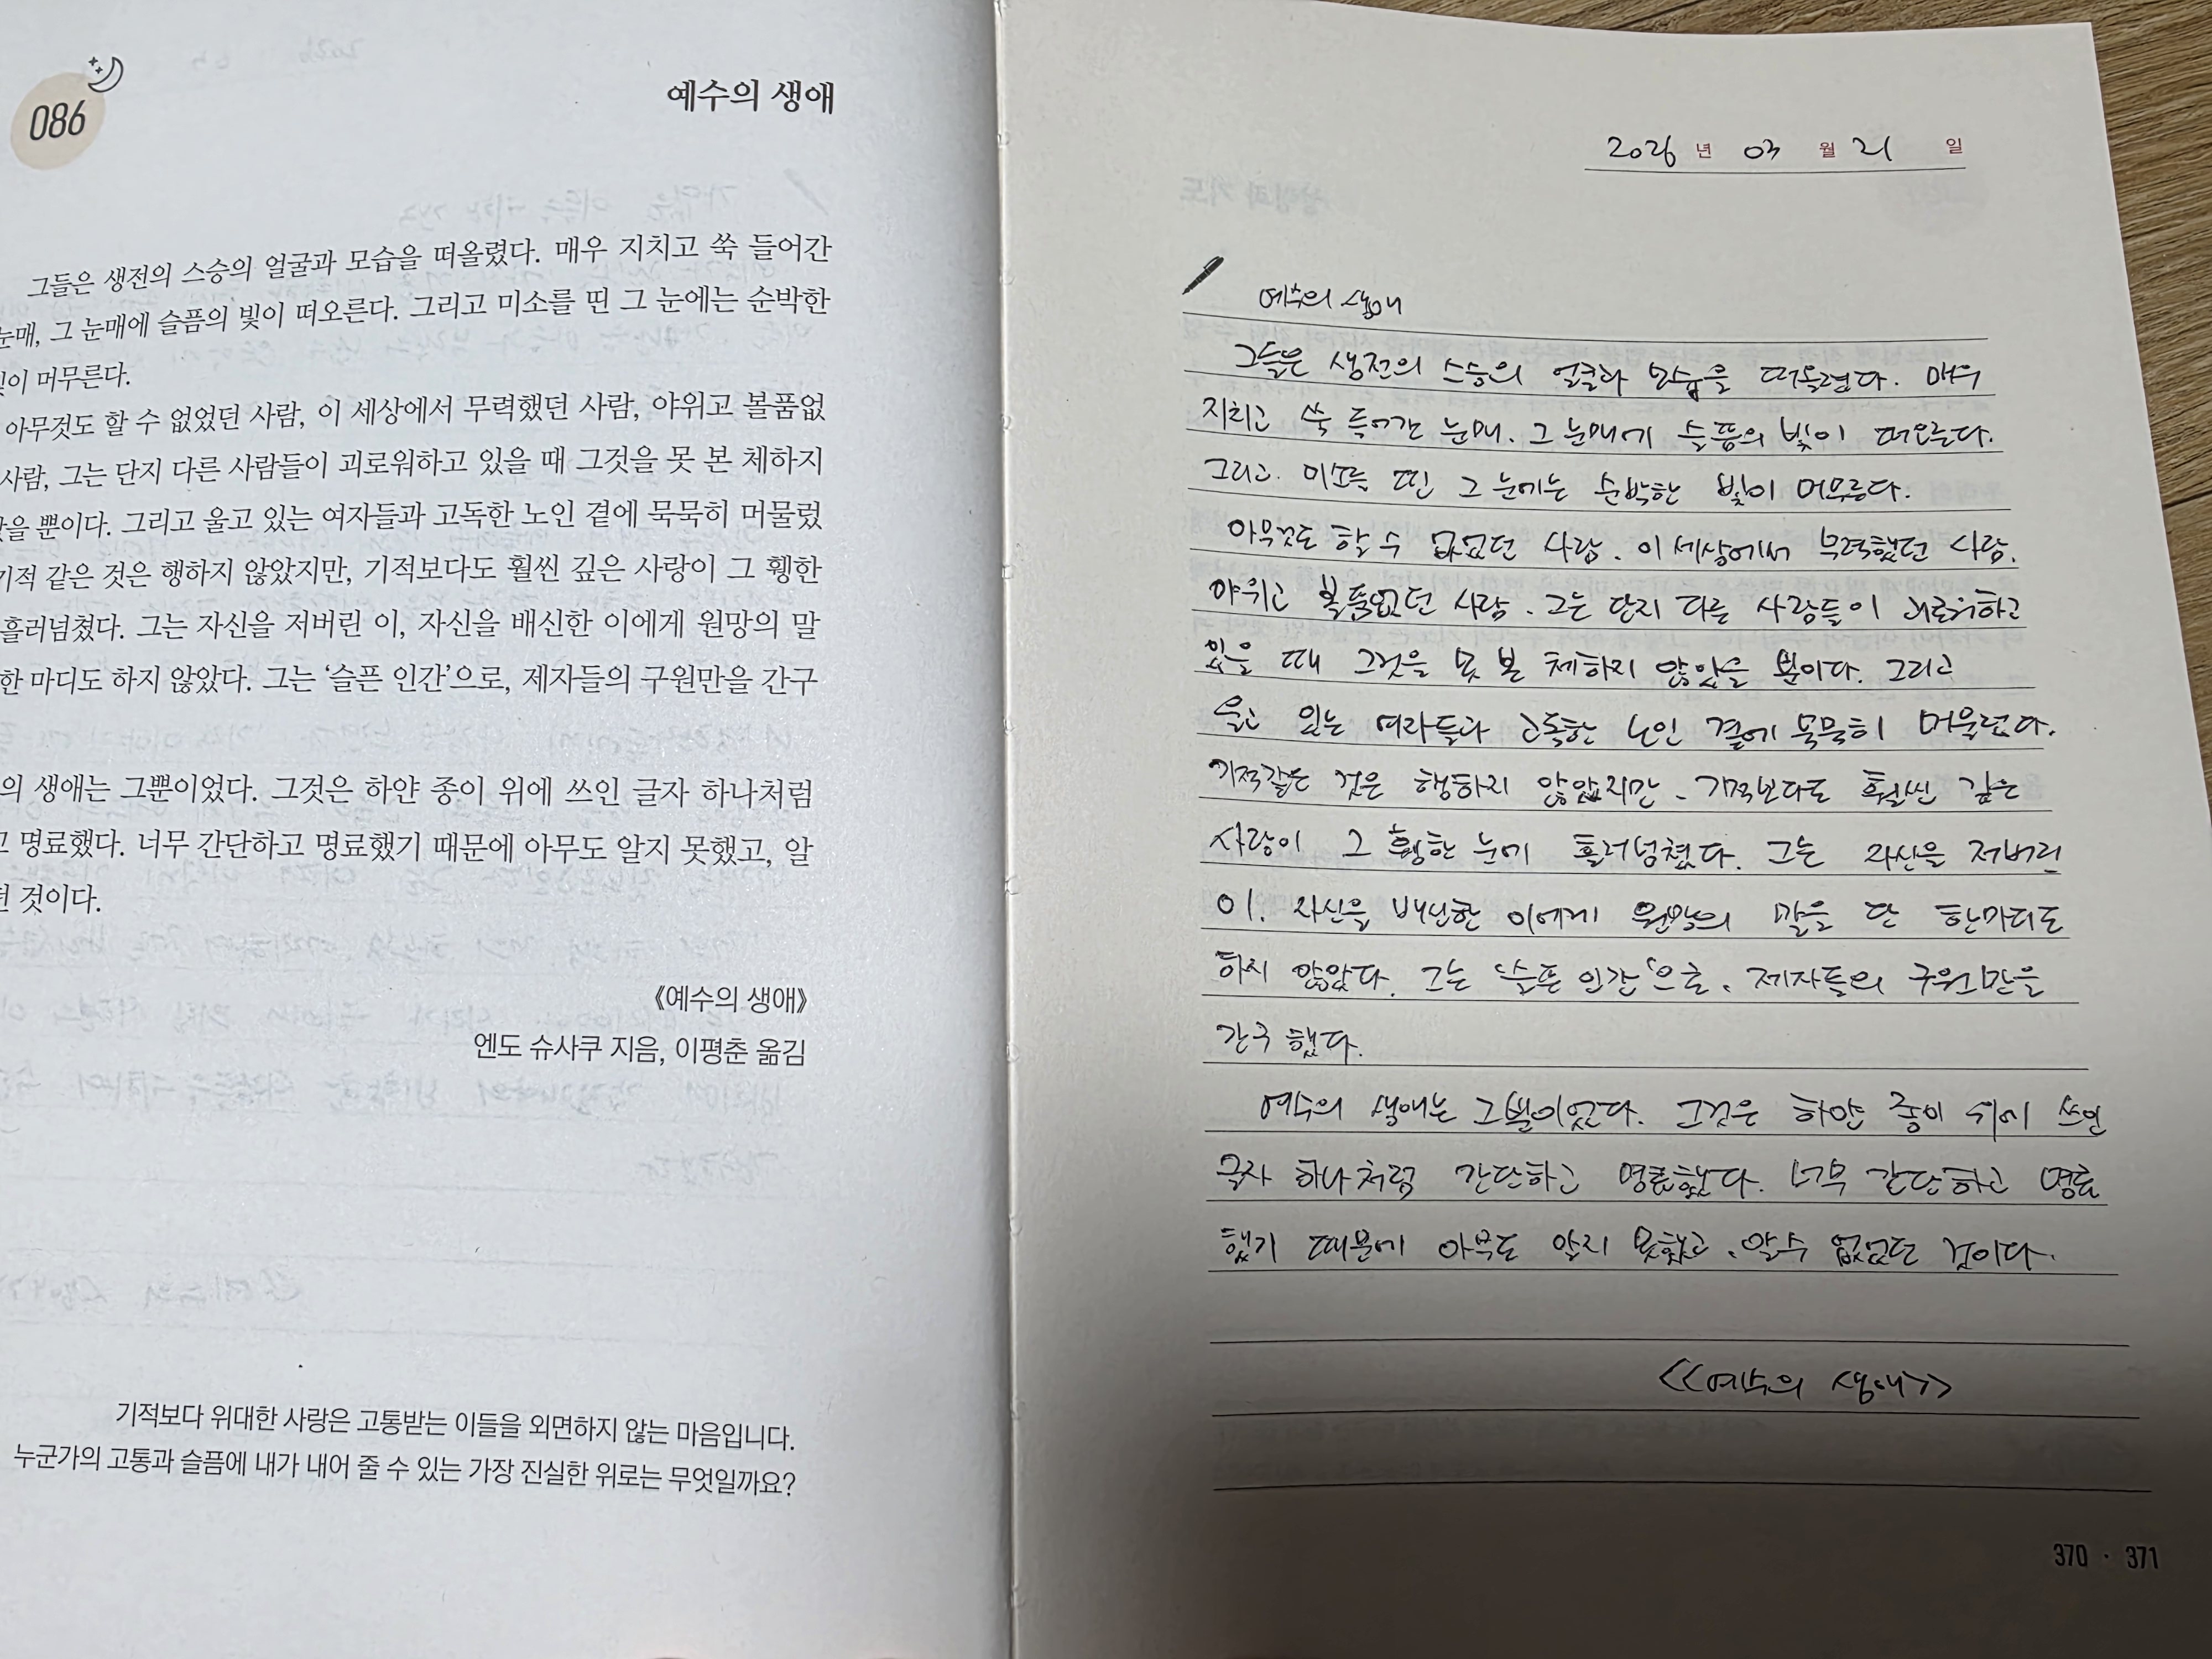 086
예수의 생애
그들은 생전의 스승의 얼굴과 모습을 떠올렸다. 매우 지치고 쑥 들어간
눈매, 그 눈매에 슬픔의 빛이 떠오른다. 그리고 미소를 띤 그 눈에는 순박한
빛이 머무른다.
아무것도 할 수 없었던 사람, 이 세상에서 무력했던 사람, 야위고 볼품없
사람, 그는 단지 다른 사람들이 괴로워하고 있을 때 그것을 못 본 체하지
을 뿐이다. 그리고 울고 있는 여자들과 고독한 노인 곁에 묵묵히 머물렀
기적 같은 것은 행하지 않았지만, 기적보다도 훨씬 깊은 사랑이 그 휑한
흘러넘쳤다. 그는 자신을 저버린 이, 자신을 배신한 이에게 원망의 말
한 마디도 하지 않았다. 그는 ‘슬픈 인간’으로, 제자들의 구원만을 간구
의 생애는 그뿐이었다. 그것은 하얀 종이 위에 쓰인 글자 하나처럼
고 명료했다. 너무 간단하고 명료했기 때문에 아무도 알지 못했고, 알
것이다.
《예수의 생애》
엔도 슈사쿠 지음, 이평춘 옮김
기적보다 위대한 사랑은 고통받는 이들을 외면하지 않는 마음입니다.
누군가의 고통과 슬픔에 내가 내어 줄 수 있는 가장 진실한 위로는 무엇일까요?
2026 년 03 월 21 일
예수의 생애
그들은 생전의 스승의 얼굴과 모습을 떠올렸다. 매우
지치고 쑥 들어간 눈매. 그 눈매에 슬픔의 빛이 떠오른다.
그리고 미소를 띤 그 눈에는 순박한 빛이 머무른다.
아무것도 할 수 없었던 사람. 이 세상에서 무력했던 사람.
야위고 볼품없었던 사람. 그는 단지 다른 사람들이 괴로워하고
있을 때 그것을 못 본 체하지 않았을 뿐이다. 그리고
울고 있는 여자들과 고독한 노인 곁에 묵묵히 머물렀다.
기적같은 것은 행하지 않았지만, 기적보다도 훨씬 깊은
사랑이 그 휑한 눈에 흘러넘쳤다. 그는 자신을 저버린
이. 자신을 배신한 이에게 원망의 말을 단 한마디도
하지 않았다. 그는 ‘슬픈 인간’으로, 제자들의 구원만을
간구 했다.
예수의 생애는 그뿐이었다. 그것은 하얀 종이 위에 쓰인
글자 하나처럼 간단하고 명료했다. 너무 간단하고 명료
했기 때문에 아무도 알지 못했고, 알수 없었던 것이다.
<<예수의 생애>>
370 · 371